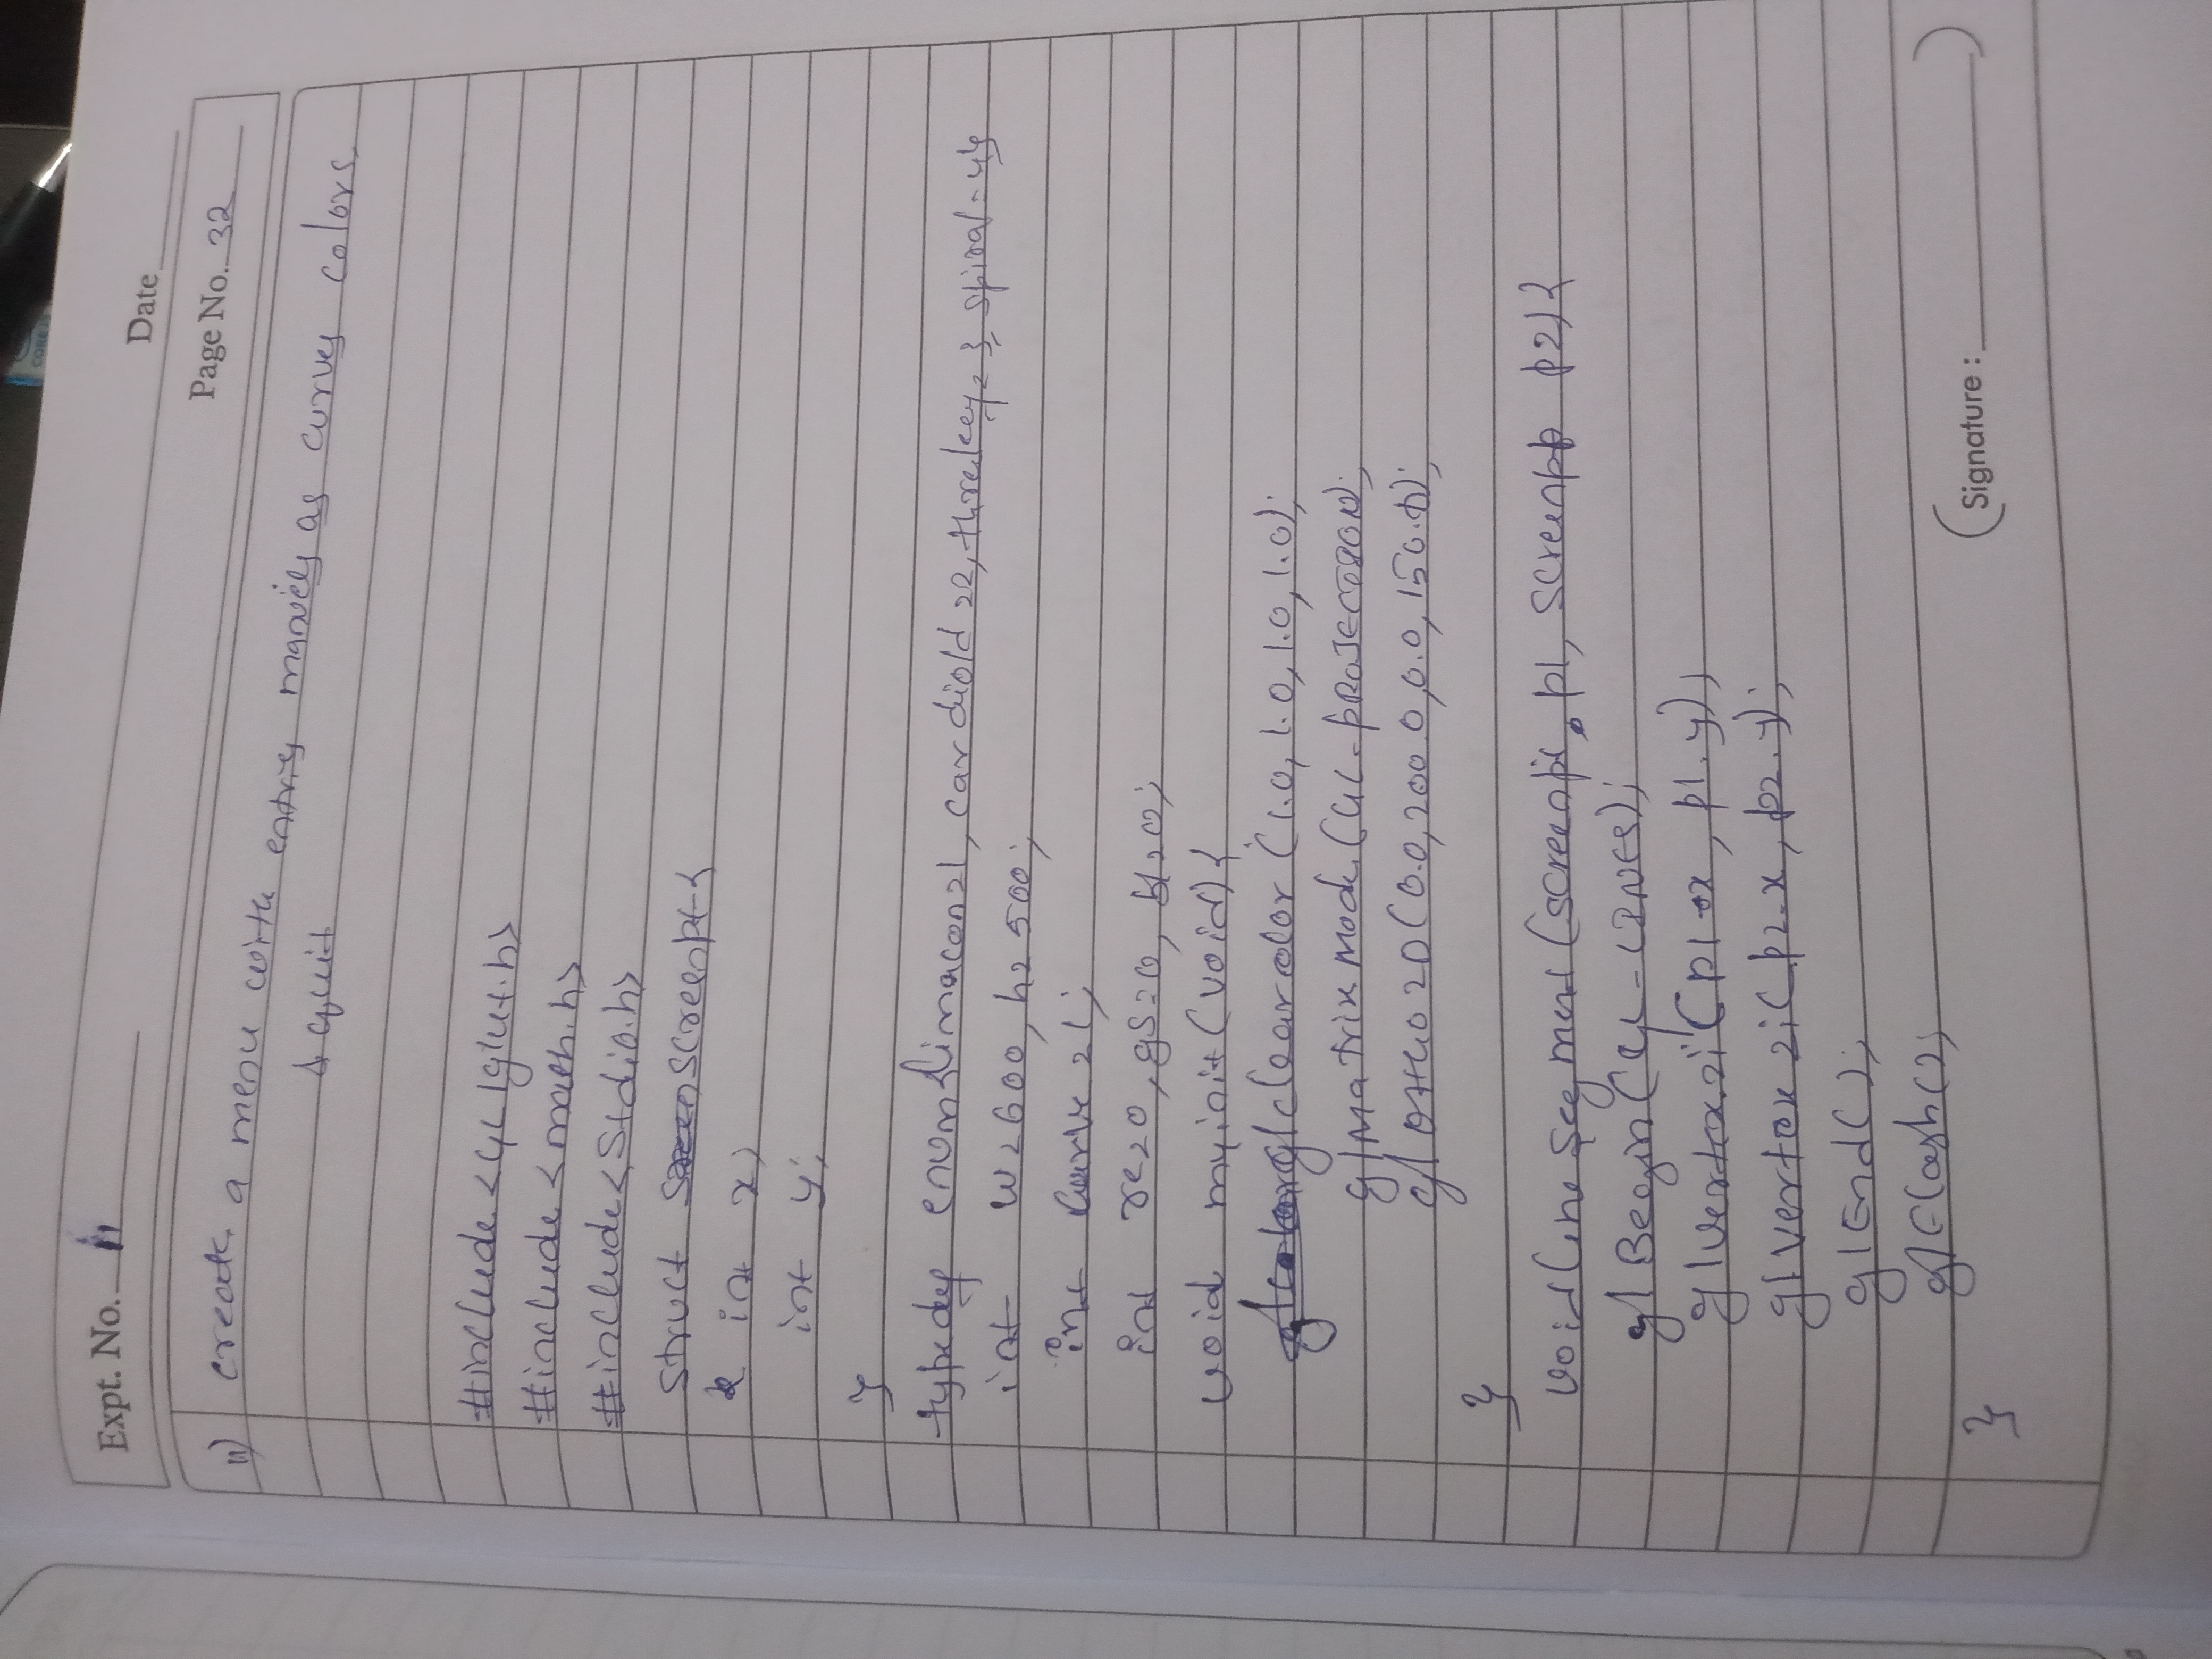 Date
Expt. No. 11
Page No. 32
11) create a menu with entries as curves colors,
& quit
#include<GL/glut.h>
#include<math.h>
#include<stdio.h>
struct screenpt{
int x;
int y;
}
typedef enum{limacon=1, cardiold=2, threeleaf=3, spiral=4}
int w=600, h=500;
int curve=1;
int re=0, gs=0, bl=0;
void myinit(void){
glclearcolor(1.0,1.0,1.0,1.0);
glMatrixMode(GL-PROJECTION);
glOrtho2D(0.0,200.0,0.0,150.0);
}
void lineSegment(screenpt p1, screenpt p2){
glBegin(GL-LINES);
glvertex2i(p1.x, p1.y);
glvertex2i(p2.x, p2.y);
glEnd();
}
(Signature: )